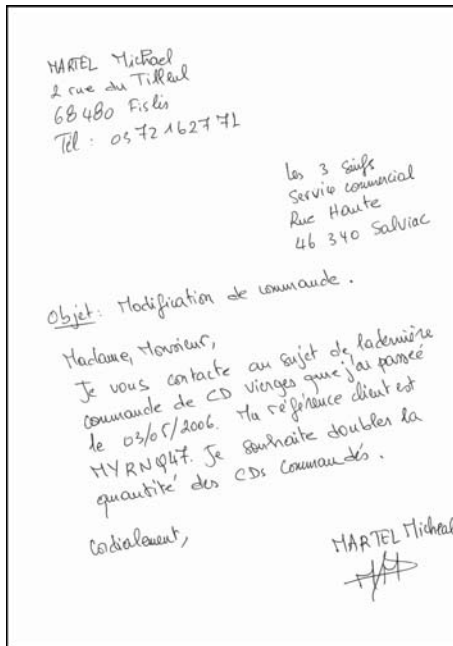 MARTEL Michael
2 rue du Tilleul
68480 Fislis
Tél : 03 72 16 27 71
Les 3 suifs
Service commercial
Rue Haute
46 340 Salviac
Objet : Modification de commande.
Madame, Monsieur,
Je vous contacte au sujet de la dernière
commande de CD vierges que j'ai passée
le 03/05/2006. Ma référence client est
MYRNQ47. Je souhaite doubler la
quantité des CDs commandés.
Cordialement,
MARTEL Micheal